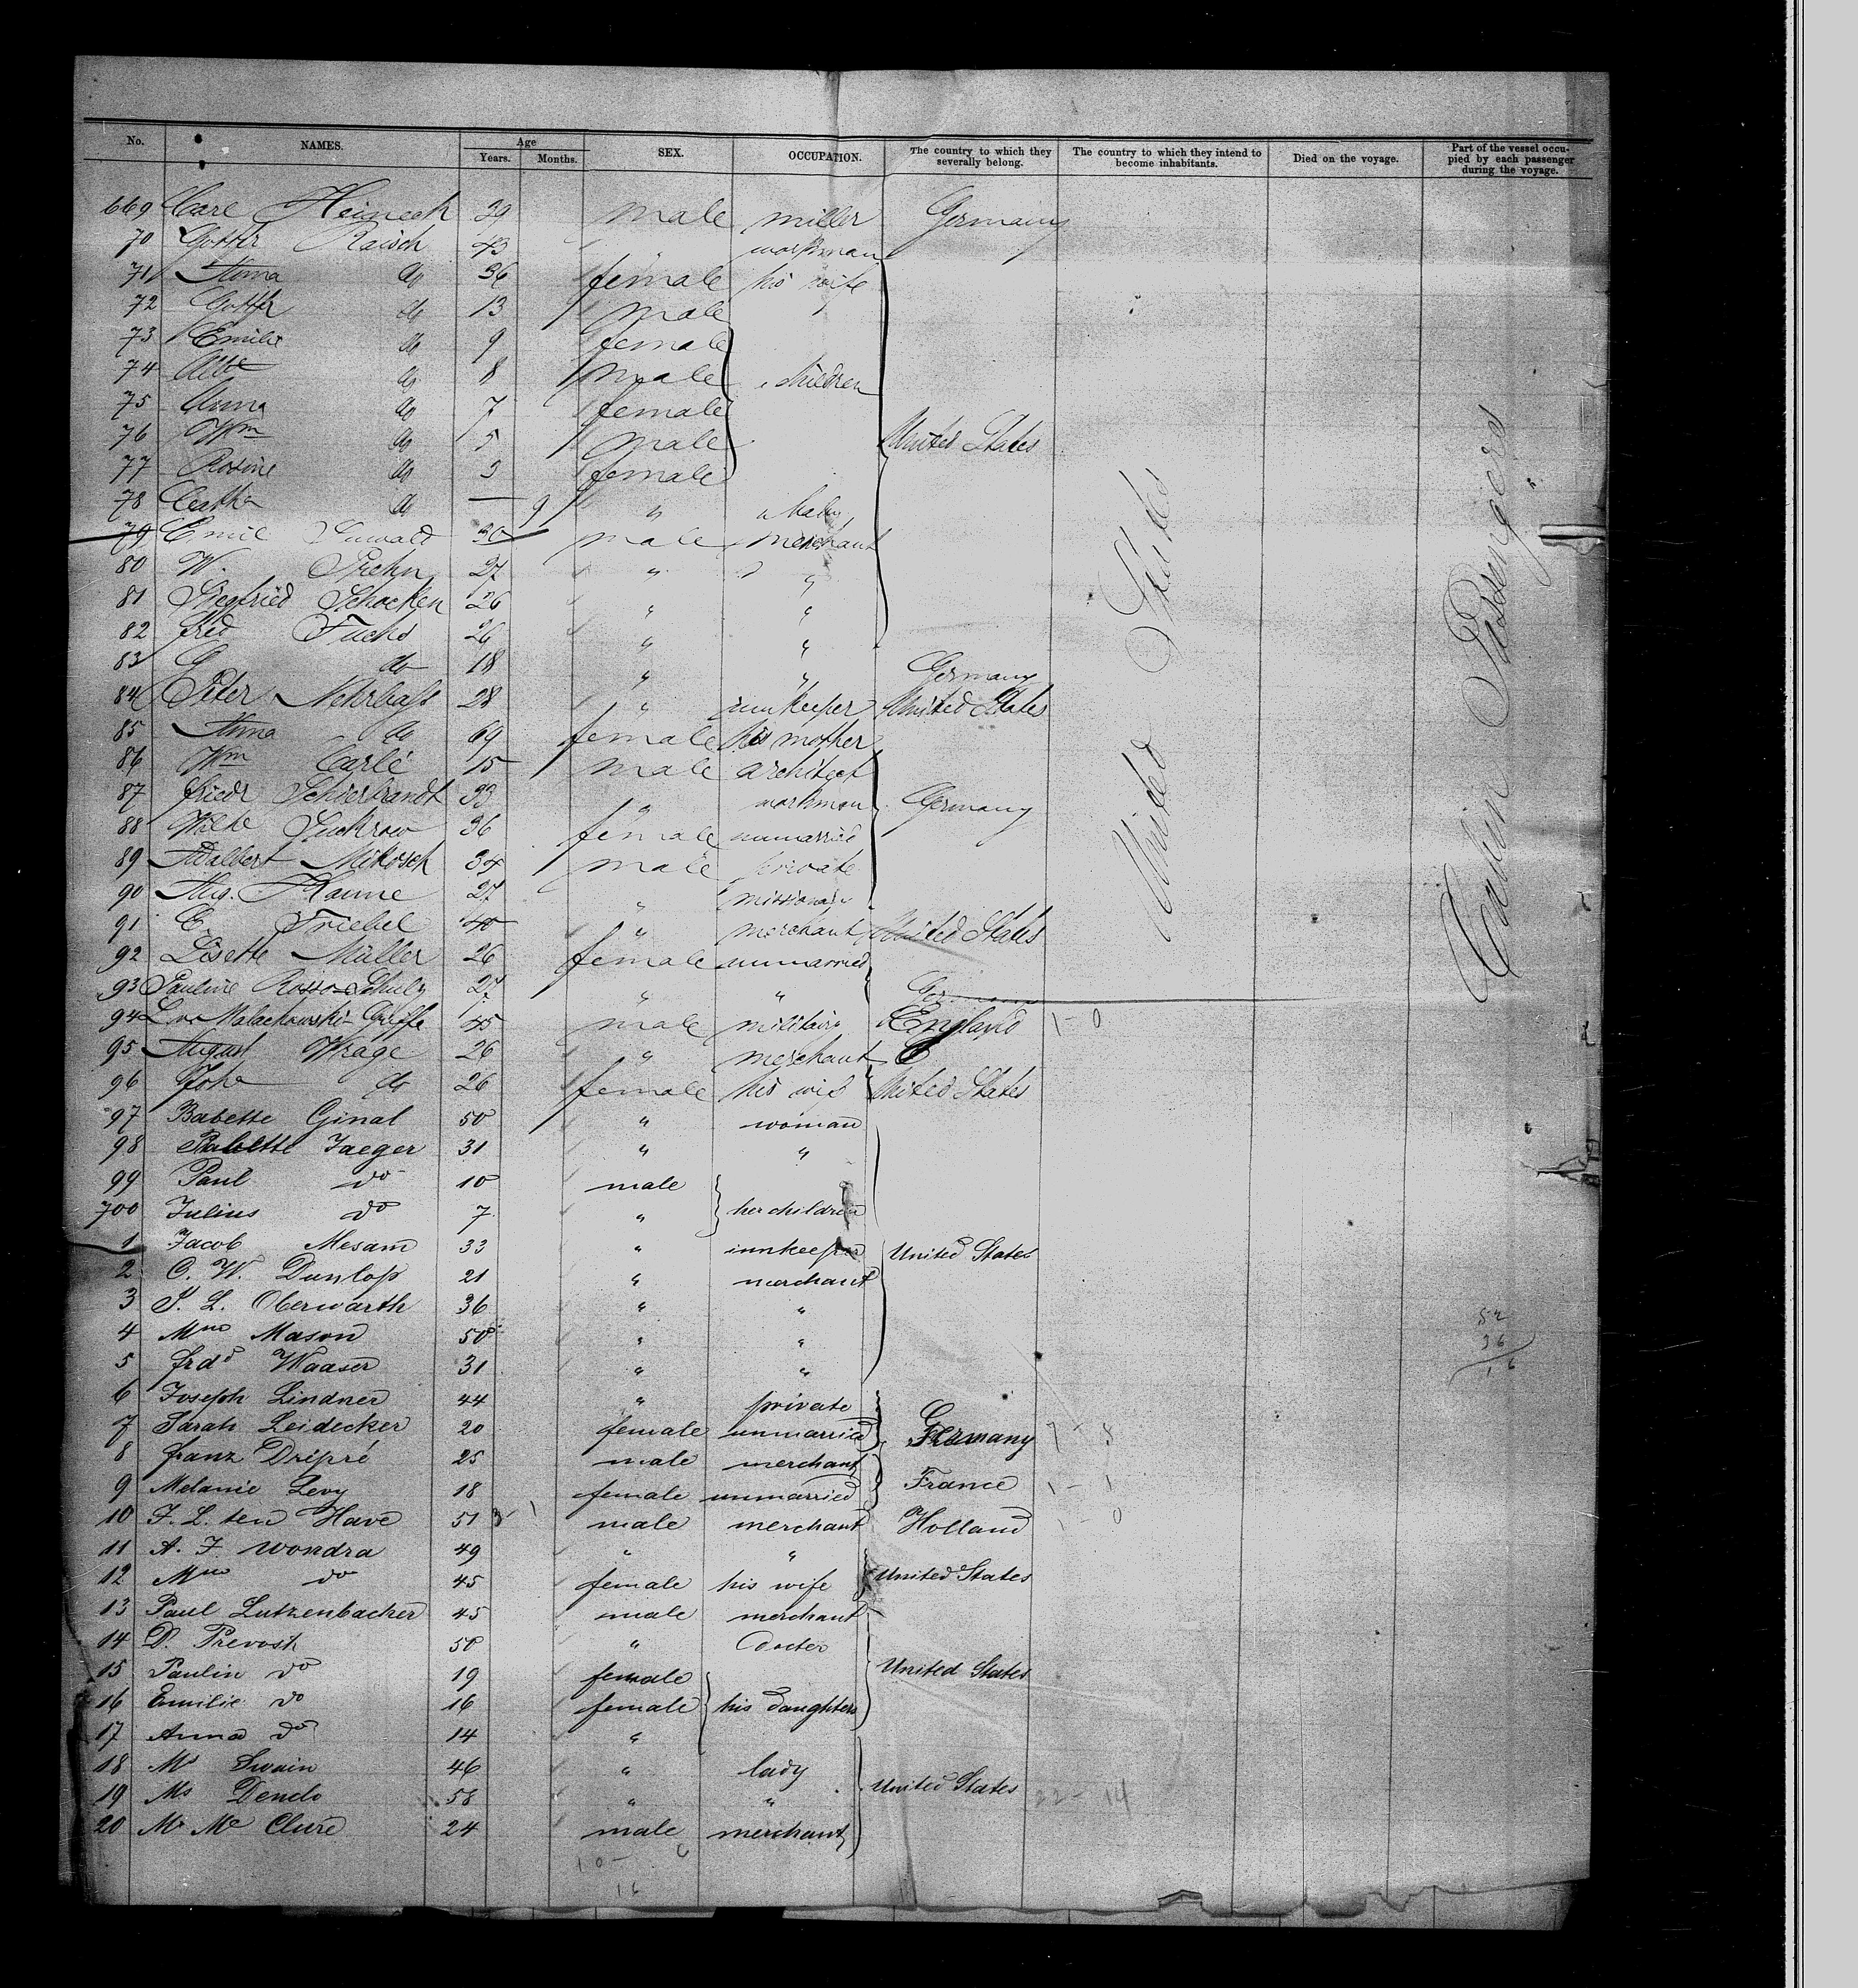 No. NAMES. Age Years. Months. SEX. OCCUPATION. The country to which they severally belong. The country to which they intend to become inhabitants. Died on the voyage. Part of the vessel occupied by each passenger during the voyage.
669 Carl Heineck 39 male miller Germany
70 Gottlr Raisch 43 " workman
71 Anna do 36 female his wife
72 Gottlr do 13 male
73 Emilie do 9 female
74 Albt do 8 male children
75 Anna do 7 female
76 Wm do 5 male United States
77 Rosine do 3 female
78 Cathr do — 9 " baby
79 Emil 30 male merchant
80 W. Prehn 27 " "
81 Siegfried Schocken 26 " "
82 Fred Fuchs 26 " "
83 G do 18 " " Germany
84 Peter Nehrbass 28 " innkeeper United States
85 Anna do 69 female his mother
86 Wm Carlé 15 male architect
87 Friedr Schierbrandt 33 " workman Germany
88 Wilhe Suckrow 36 female unmarried
89 Adalbert Mikosch 34 male private
90 Aug. Hanne 27 " missionair
91 C. Friebel 40 " merchant United States
92 Lisette Müller 26 female unmarried
93 Pauline Rosso-Schulz 27 " " Germany
94 L. von Malachowski-Griffa 45 male militair England 1 - 0
95 August Wrage 26 " merchant
96 Johe do 26 female his wife United States
97 Babette Ginal 50 " woman
98 Babette Jaeger 31 " "
99 Paul do 10 male
700 Julius do 7 " her children
1 Jacob Mesam 33 " innkeeper United States
2 O. W. Dunlop 21 " merchant
3 S. L. Oberwarth 36 " "
4 Mno Mason 50 " "
5 Frdd Waaser 31 " "
6 Joseph Lindner 44 " private
7 Sarah Leidecker 20 female unmarried Germany 7 - 8
8 Franz Dripré 25 male merchant
9 Melanie Levy 18 female unmarried France 1 - 1
10 J. L. ten Have 51 male merchant Holland 1 - 0
11 A. F. Wondra 49 " "
12 Mno do 45 female his wife United States
13 Paul Lutzenbacher 45 male merchant
14 D. Prevost 50 " Docter
15 Paulin do 19 female United States
16 Emilie do 16 female his daughters
17 Anna do 14 "
18 Ms Swain 46 " lady
19 Ms Dendo 58 " " United States 22 - 14
20 Mr Mc Clure 24 male merchant
10 - 6
16
United States
Cabin Passengers
52
36
16